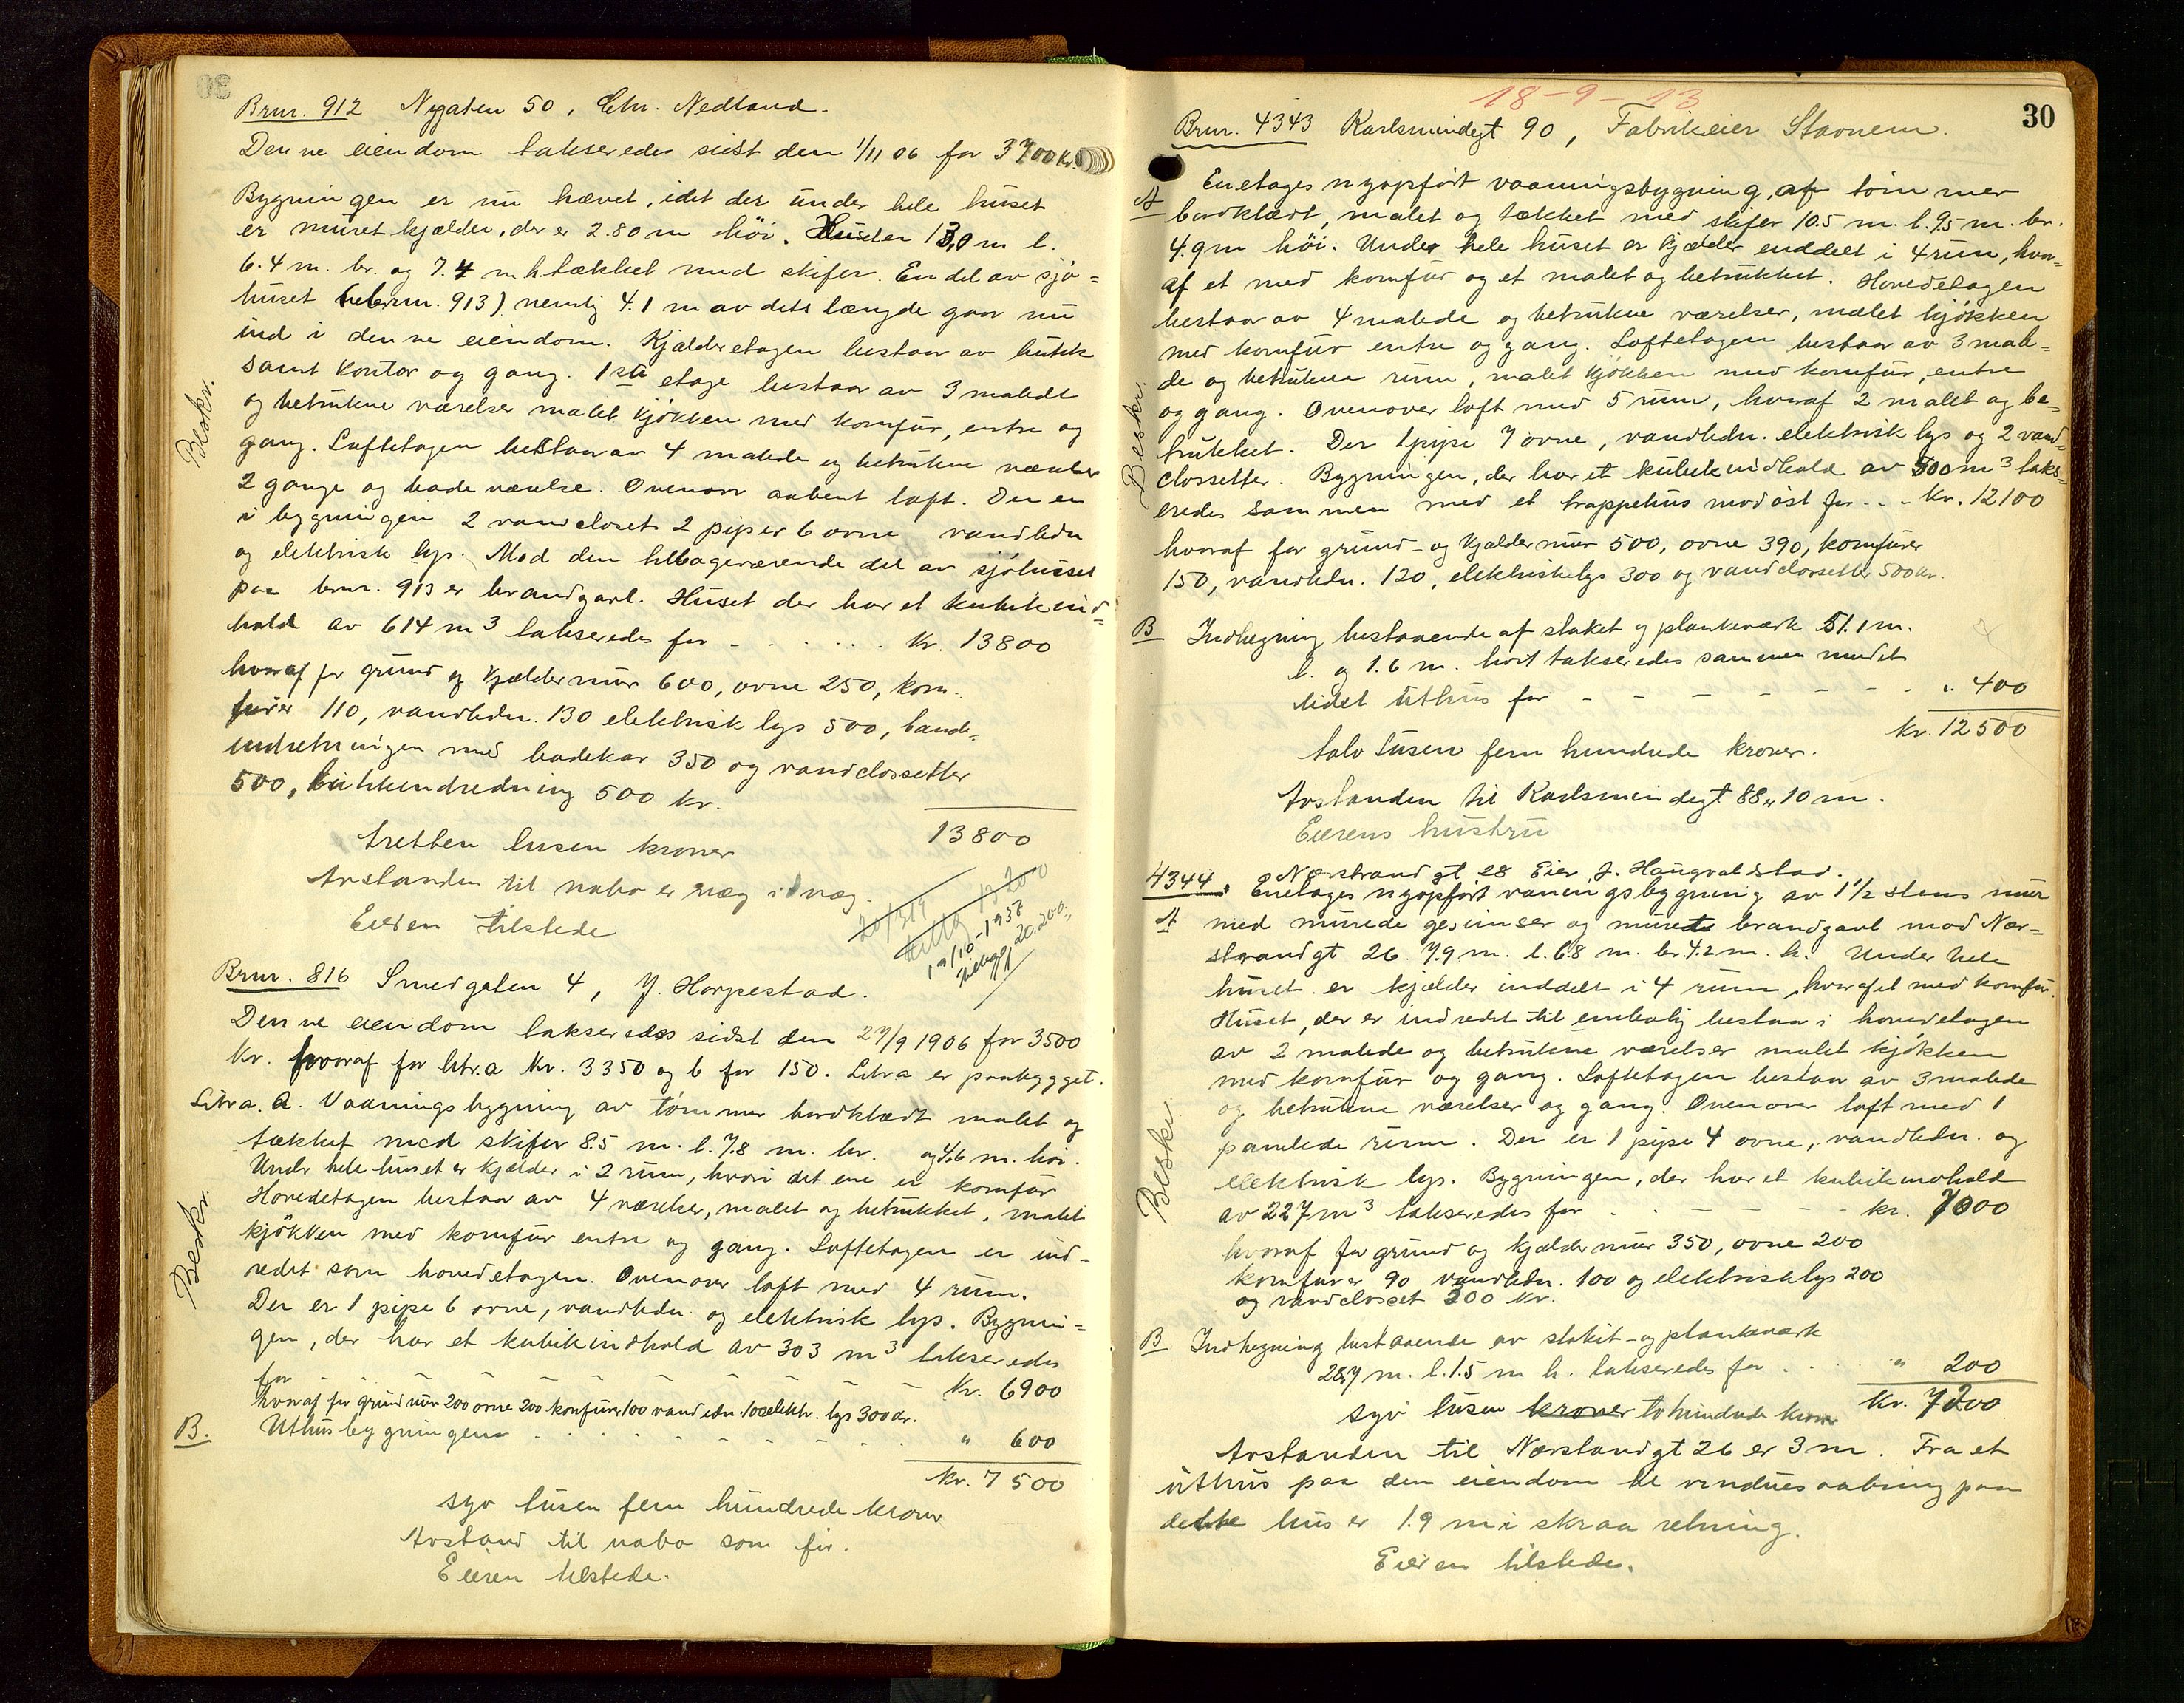 Brnr. 912 Nygaten 50, Chr. Nedland.
Denne eiendom takseredes sidst den 1/11 06 for 3700 kr.
Bygningen er nu hævet, idet der under hele huset
er muret kjælder, der er 2.80 m höi. Huset er 13,0 m l.
6.4 m. br. og 7.4 m h. tækket med skifer. En del av sjö=
huset (brnr. 913) nemlig 4.1 m av dets længde gaar nu
ind i denne eiendom. Kjælderetagen bestaar av butik
samt kontor og gang. 1ste etage bestaar av 3 malede
og betrukne værelser malet kjökken med komfur, entre og
gang. Loftetagen bestaar av 4 malede og betrukne værelser
2 gange og badeværelse. Ovenover aabent loft. Der er
i bygningen 2 vandcloset 2 piper 6 ovne vandledn
og elektrisk lys. Mod den tilbageværende del av sjöhuset
paa brnr. 913 er brandgavl. Huset der har et kubikind=
hold av 614 m3 takseredes for . . . . . kr. 13800
hvoraf for grund og kjældermur 600, ovne 250, kom-
furer 110, vandledn. 130 elektrisk lys 500, bade-
indretningen med badekar 350 og vandclossetter
500, butikkindredning 500 kr.
13800
tretten tusen kroner
Avstanden til nabo er væg i væg.
Eieren tilstede
19/10-1937
tillegg 20.200.-
Beskr.
Brnr. 816 Smedgaten 4, J. Harpestad.
Denne eiendom takseredes sidst den 27/9 1906 for 3500
kr. hvoraf for litr. a kr. 3350 og b for 150. Litra er paabygget.
Litra. a. Vaaningsbygning av tømmer bordklædt malet og
tækket med skifer 8.5 m. l. 7.8 m. br. og 4,6 m. höi.
Under hele huset er kjælder i 2 rum, hvori det ene er komfur
Hovedetagen bestaar av 4 værelser, malet og betrukket, malet
kjökken med komfur entre og gang. Loftetagen er ind-
redet som hovedetagen. Ovenover loft med 4 rum.
Der er 1 pipe 6 ovne, vandledn. og elektrisk lys. Bygnin=
gen, der har et kubikindhold av 303 m3 takseredes
for - - - - - - - kr. 6900
hvoraf for grundmur 200 ovne 200 komfurer 100 vandledn. 100 elektr. lys 300 kr.
B. Uthusbygningen . . . . . " 600
kr. 7500
syv tusen fem hundrede kroner
Avstand til nabo som för.
Eieren tilstede.
Beskr.
30
18-9-13
Brnr. 4343 Karlsmindegt 90, Fabrikeier Stavnem.
A Enetages nyopfört vaaningsbygning, af tömmer
bordklædt, malet og tækket med skifer 10.5 m. l. 9.5 m. br.
4.9 m höi. Under hele huset er kjælder inddelt i 4 rum, hvor-
af et med komfur og et malet og betrukket. Hovedetagen
bestaar av 4 malede og betrukne værelser, malet kjökken
med komfur entre og gang. Loftetagen bestaar av 3 male=
de og betrukne rum, malet kjökken med komfur, entre
og gang. Ovenover loft med 5 rum, hvoraf 2 malet og be=
trukket. Der 1 pipe 7 ovne, vandledn. elektrisk lys og 2 vand=
clossetter. Bygningen, der har et kubikindhold av 500 m3 taks=
eredes sammen med et trappehus mod öst for . . kr. 12100
hvoraf for grund- og kjældermur 500, ovne 390, komfurer
150, vandledn. 120, elektrisk lys 300 og vandclossetter 500 kr.
B Indhegning bestaaende af staket og plankeværk 51.1 m.
l. og 1.6 m. höit takseredes sammen med et
lidet uthus for - - - - - - - " 400
kr. 12500
tolv tusen fem hundrede kroner.
Avstanden til Karlsmindegt 88 er 10 m.
Eierens hustru
Beskr.
4344. Nærstrandgt 28 Eier J. Haugvaldstad.
A Enetages nyopfört vaaningsbygning av 1½ stens mur
med murede gesimser og murede brandgavl mod Nær=
strandgt 26. 7.9 m. l. 6.8 m. br. 4.2 m. h. Under hele
huset er kjælder inddelt i 4 rum, hvoraf et med komfur.
Huset, der er indredet til enebolig bestaar i hovedetagen
av 2 malede og betrukne værelser malet kjökken
med komfur og gang. Loftetagen bestaar av 3 malede
og betrukne værelser og gang. Ovenover loft med 1
panelede rum. Der er 1 pipe 4 ovne, vandledn. og
elektrisk lys. Bygningen, der har et kubikindhold
av 227 m3 takseredes for . . - - - kr. 7000
hvoraf for grund og kjældermur 350, ovne 200
komfurer 90 vandledn. 100 og elektrisk lys 200
og vandcloset 200 kr.
B Indhegning bestaaende av stakit- og plankeværk
28,7 m. l. 1.5 m h. takseredes for . . . " 200
kr. 7200
syv tusen kroner to hundrede kroner
Avstanden til Nærstrandgt 26 er 3 m. Fra et
uthus paa den eiendom til vinduesaabning paa
dette hus er 1.9 m i skraa retning.
Eieren tilstede.
Beskr.